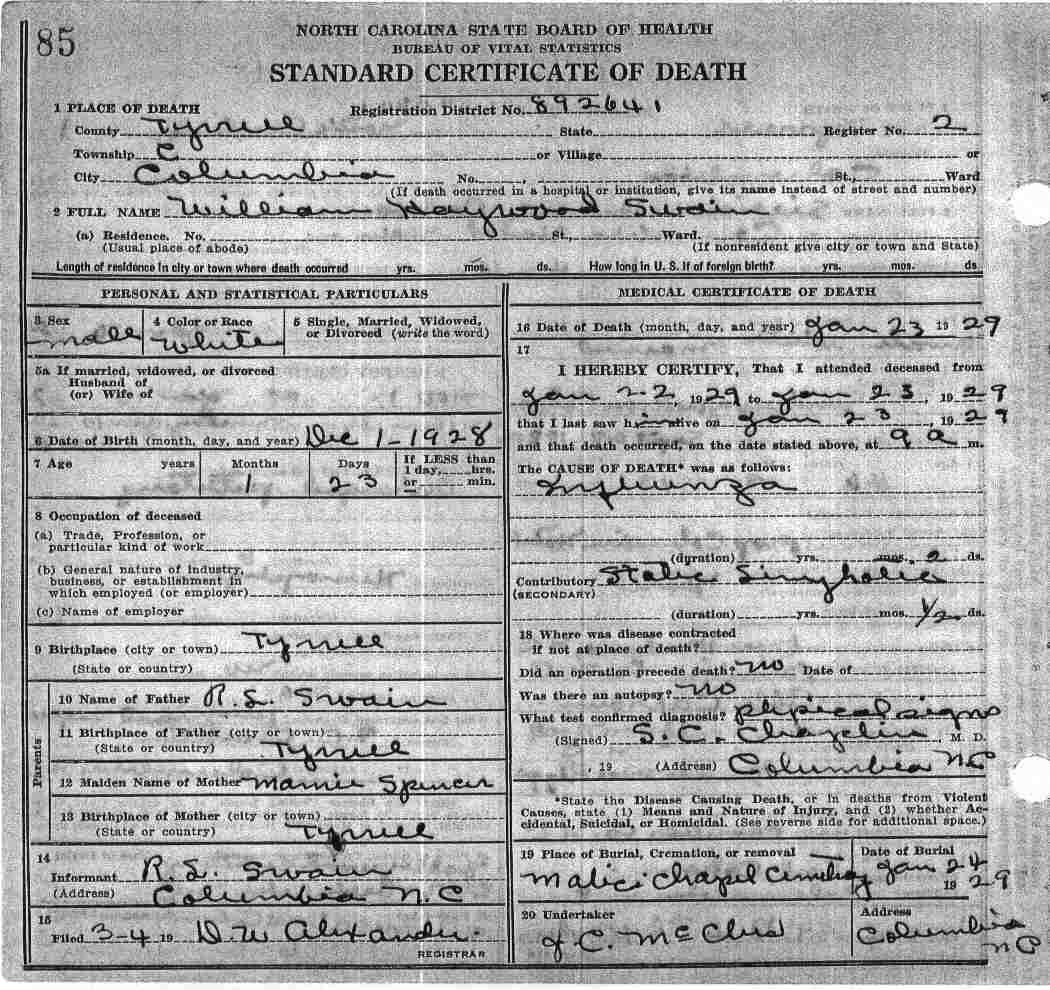 85
NORTH CAROLINA STATE BOARD OF HEALTH
BUREAU OF VITAL STATISTICS
STANDARD CERTIFICATE OF DEATH
1 PLACE OF DEATH Registration District No. 892641
County Tyrrell State Register No. 2
Township C or Village or
City Columbia No. , St., Ward
(If death occurred in a hospital or institution, give its name instead of street and number)
2 FULL NAME William Haywood Swain
(a) Residence. No. St., Ward.
(Usual place of abode) (If nonresident give city or town and State)
Length of residence in city or town where death occurred yrs. mos. ds. How long in U. S. if of foreign birth? yrs. mos. ds
PERSONAL AND STATISTICAL PARTICULARS
3 Sex
male
4 Color or Race
White
5 Single, Married, Widowed,
or Divorced (write the word)
5a If married, widowed, or divorced
Husband of
(or) Wife of
6 Date of Birth (month, day, and year) Dec 1-1928
7 Age years Months Days If LESS than
1 day, hrs.
1 23 or min.
8 Occupation of deceased
(a) Trade, Profession, or
particular kind of work
(b) General nature of industry,
business, or establishment in
which employed (or employer)
(c) Name of employer
9 Birthplace (city or town) Tyrrell
(State or country)
Parents
10 Name of Father R. L. Swain
11 Birthplace of Father (city or town)
(State or country) Tyrrell
12 Maiden Name of Mother Mamie Spencer
13 Birthplace of Mother (city or town)
(State or country) Tyrrell
14
Informant R. L. Swain
(Address) Columbia N.C
15
Filed 3-4 19 D. W. Alexander.
REGISTRAR
MEDICAL CERTIFICATE OF DEATH
16 Date of Death (month, day, and year) Jan 23 19 29
17
I HEREBY CERTIFY, That I attended deceased from
Jan 22, 1929 to Jan 23, 1929
that I last saw him alive on Jan 23, 1929
and that death occurred, on the date stated above, at 9 a m.
The CAUSE OF DEATH* was as follows:
Influenza
(duration) yrs. mos. 2 ds.
Contributory
(SECONDARY)
(duration) yrs. mos. 1/2 ds.
18 Where was disease contracted
if not at place of death?
Did an operation precede death? no Date of
Was there an autopsy? no
What test confirmed diagnosis? physical signs
(Signed) S. C. Chaplin, M. D.
, 19 (Address) Columbia NC
*State the Disease Causing Death, or in deaths from Violent
Causes, state (1) Means and Nature of Injury, and (2) whether Ac-
cidental, Suicidal, or Homicidal. (See reverse side for additional space.)
19 Place of Burial, Cremation, or removal
Chapel Cemetery
Date of Burial
Jan 24
1929
20 Undertaker
J. C.
Address
Columbia
NC